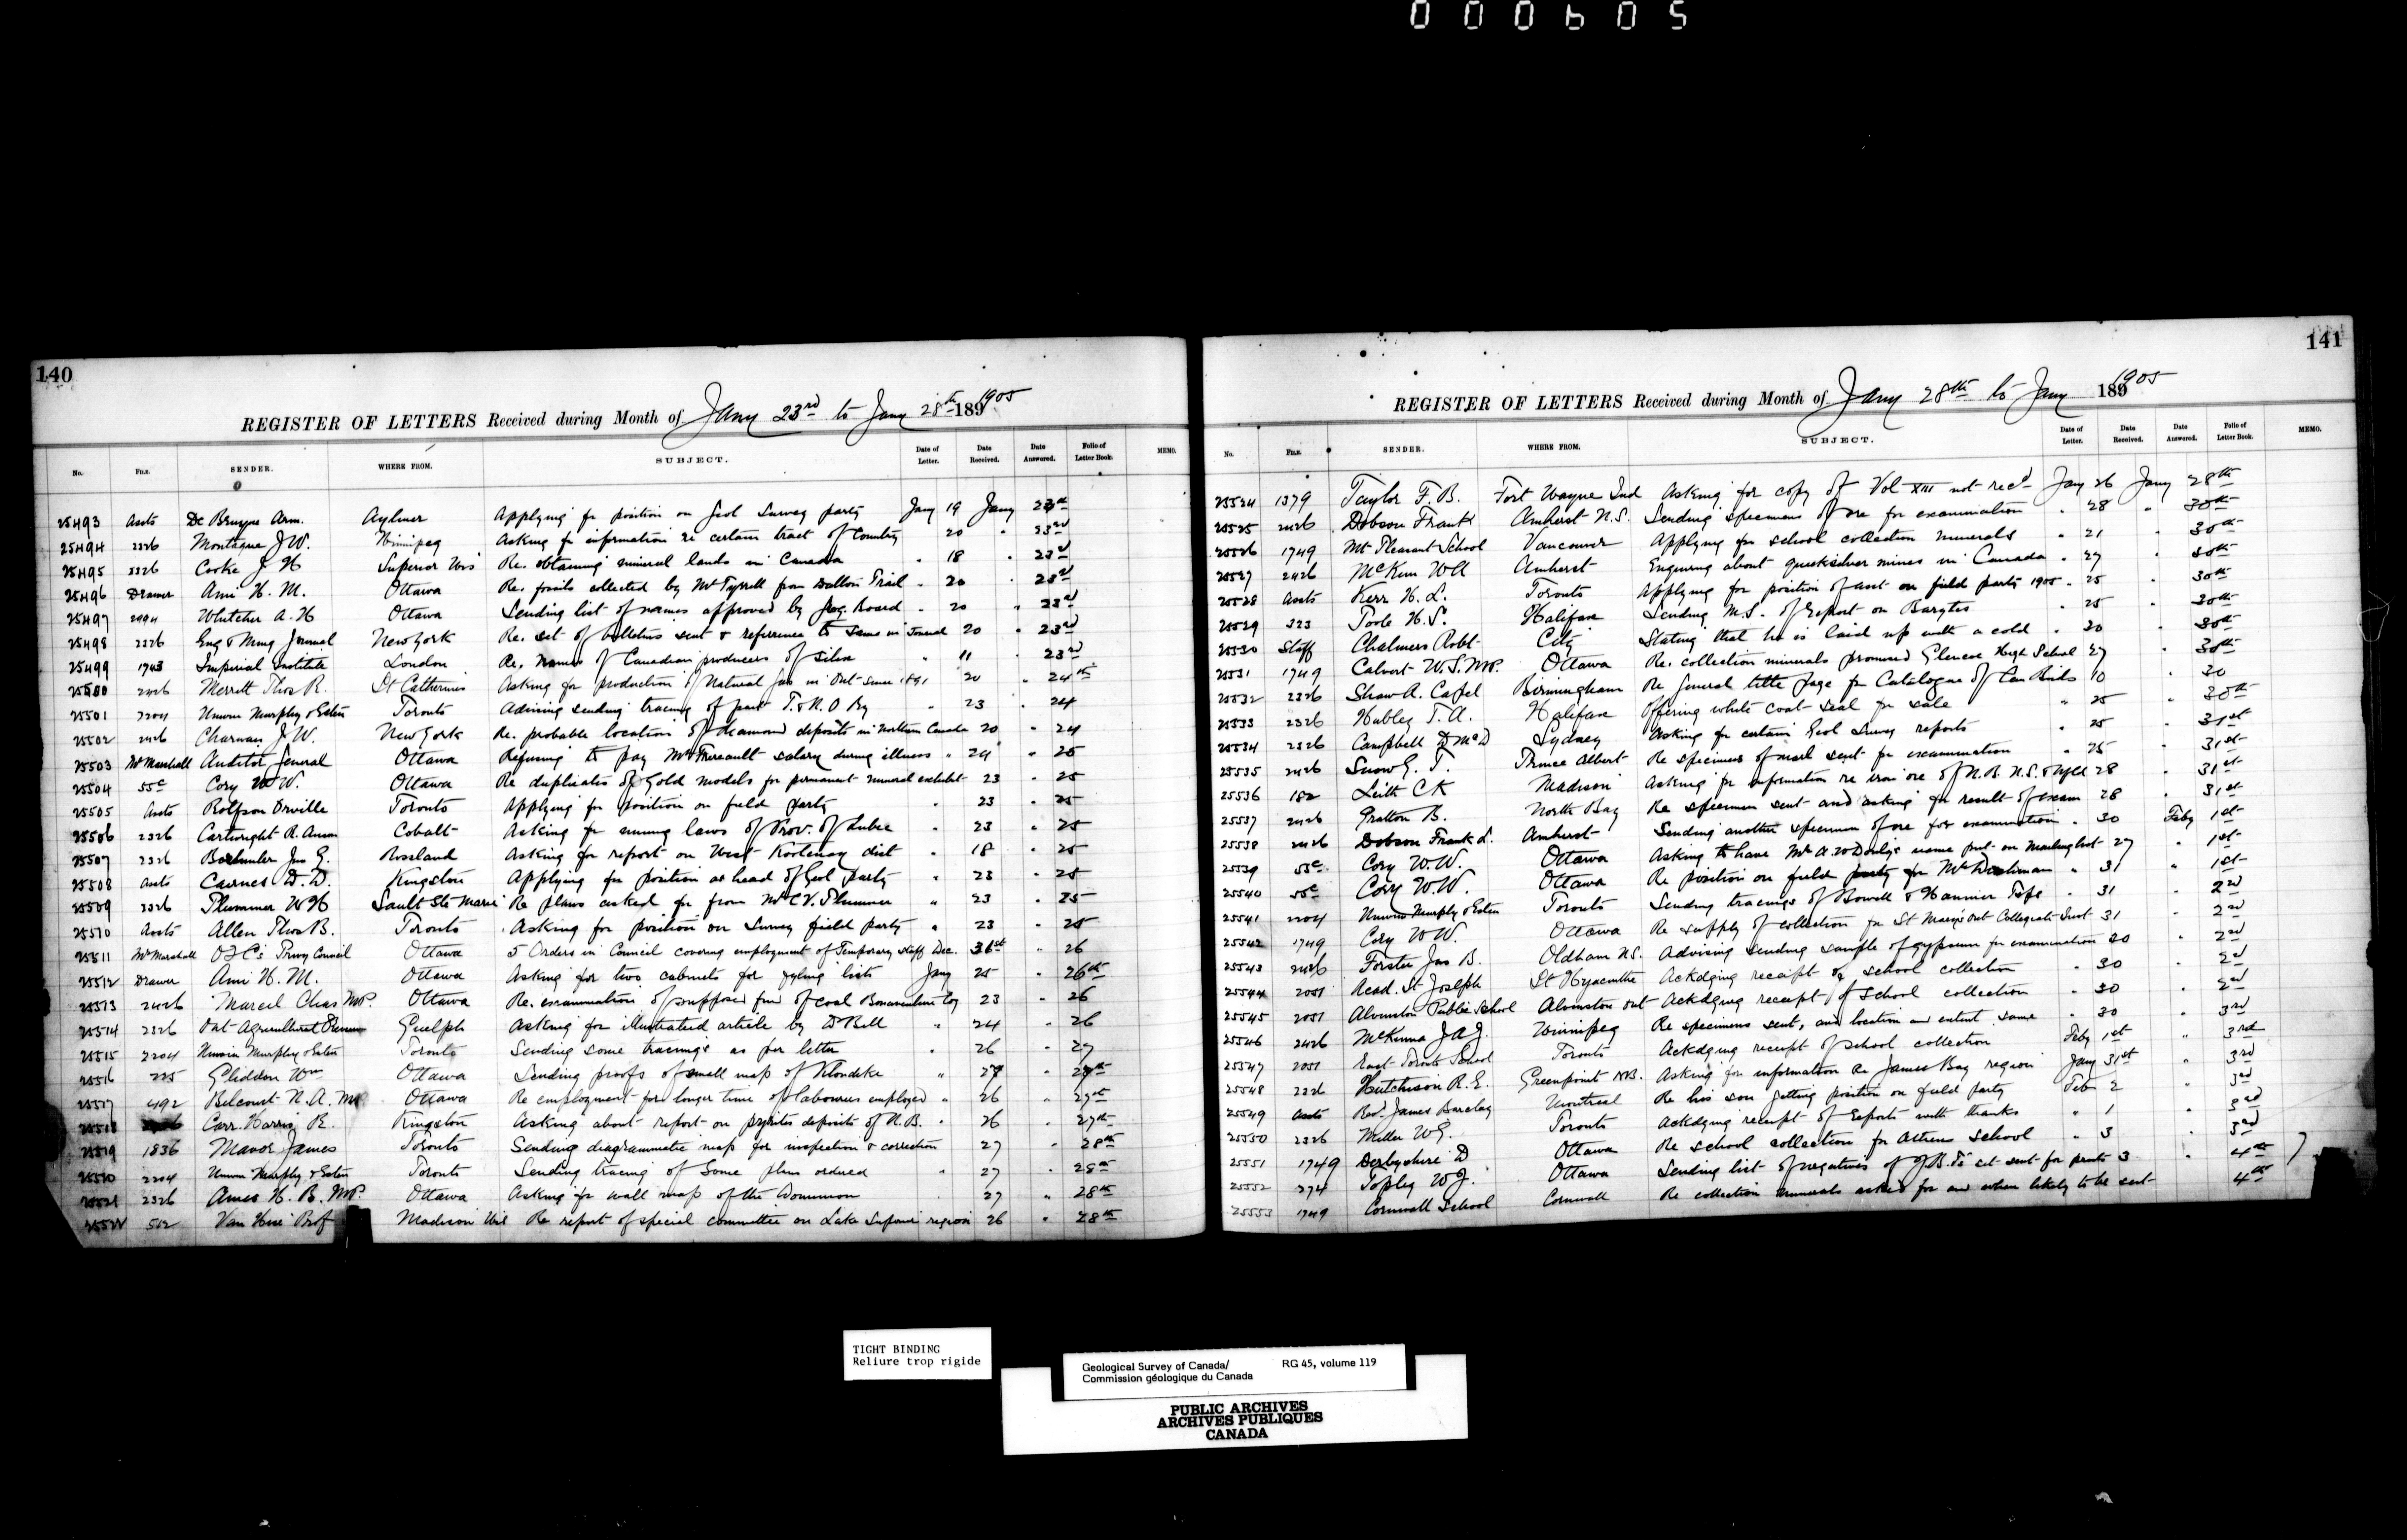 000605
140
REGISTER OF LETTERS Received during Month of Jany 23rd to Jany 28th 1891905
No. FILE. SENDER. WHERE FROM. SUBJECT. Date of Letter. Date Received. Date Answered. Folio of Letter Book. MEMO.
25493 Assts De Bruyne Arm. Aylmer Applying for position on Geol Survey party Jany 19 Jany 23rd
25494 2326 Montague J W. Winnipeg Asking for information re certain tract of Country 20 " 23rd
25495 2326 Cooke J H Superior Wis Re. obtaining mineral lands in Canada " 18 " 23rd
25496 Drawer Ami H. M. Ottawa Re. fossils collected by Mr Tyrrell from Dalton Trail " 20 " 23rd
25497 2094 Whitcher A. H Ottawa Sending list of names approved by Geog. Board " 20 " 23rd
25498 2326 Eng & Ming Journal New York Re. set of bulletins sent & reference to same in Journal 20 " 23rd
25499 1743 Imperial Institute London Re. Names of Canadian producers of Silver " 11 " 23rd
25500 2426 Merritt Thos R. St Catherines Asking for production of Natural Gas in Ont since 1891 20 " 24th
25501 2204 Unwin Murphy & Esten Toronto Advising sending tracing of part T. & N. O Ry " 23 " 24
25502 2426 Charman J W. New York Re. probable location of diamond deposits in Northern Canada 20 " 24
25503 Mr Marshall Auditor General Ottawa Refusing to pay Mr Thereault salary during illness " 24 " 25
25504 55c Cory W W. Ottawa Re duplicates of Gold models for permanent mineral exhibit 23 " 25
25505 Assts Rolfson Orville Toronto Applying for position on field party " 23 " 25
25506 2326 Cartwright R. Cobalt Asking for mining laws of Prov. of Quebec " 23 " 25
25507 2326 Jno G. Rossland Asking for report on West Kootenay dist " 18 " 25
25508 Assts Cairnes D. D. Kingston Applying for position as head of Geol party " 23 " 25
25509 2326 Plummer W H Sault Ste Marie Re plans asked for from Mr C V. Plummer " 23 " 25
25510 Assts Allen Thos B. Toronto Asking for position on Survey field party " 23 " 25
25511 Mr Marshall O I C's Privy Council Ottawa 5 Orders in Council covering employment of Temporary staff Dec. 31st " 26
25512 Drawer Ami H. M. Ottawa Asking for two cabinets for fyling lists Jany 25 " 26th
25513 2426 Marcil Chas M.P. Ottawa Re. examination of supposed find of coal Bonaventure Coy 23 " 26
25514 2326 Ont Agricultural Guelph Asking for illustrated article by Dr Bell " 24 " 26
25515 2204 Unwin Murphy & Esten Toronto Sending some tracings as per letter " 26 " 27
25516 225 Gliddon Wm Ottawa Sending proofs of small map of Klondike " 27 " 27th
25517 492 Belcourt N. A. MP Ottawa Re employment for longer time of labourers employed " 26 " 27th
25518 Carr Harris R. Kingston Asking about report on pyrites deposits of N. B. " 26 " 27th
25519 1836 Manor James Toronto Sending diagrammatic map for inspection & correction 27 " 28th
25520 2204 Unwin Murphy & Esten Toronto Sending tracing of some plan ordered " 27 " 28th
25521 2326 Ames H. B. M.P. Ottawa Asking for wall map of the Dominion " 27 " 28th
25522 512 Van Hise Prof Madison Wis Re report of special committee on Lake Superior region 26 " 28th
141
REGISTER OF LETTERS Received during Month of Jany 28th to Jany 1891905
No. FILE. SENDER. WHERE FROM. SUBJECT. Date of Letter. Date Received. Date Answered. Folio of Letter Book. MEMO.
25524 1379 Taylor F. B. Fort Wayne Ind Asking for copy of Vol XIII not recd Jany 26 Jany 28th
25525 2426 Dobson Frank Amherst N.S. Sending specimens of ore for examination " 28 " 30th
25526 1749 Mt Pleasant School Vancouver Applying for school collection minerals " 21 " 30th
25527 2426 McKim W A Amherst Enquiring about quicksilver mines in Canada " 27 " 30th
25528 Assts Kerr H. L. Toronto Applying for position of asst on field party 1905 " 25 " 30th
25529 323 Poole H. S. Halifax Sending M.S. of Report on Barytes " 25 " 30th
25530 Staff Chalmers Robt City Stating that he is laid up with a cold " 30 " 30th
25531 1749 Calvert W. S. M.P. Ottawa Re. collection minerals promised Glencoe High School 27 " 30th
25532 2326 Shaw A. Capel Birmingham Re General title page for Catalogue of Can Birds 10 " 30
25533 2326 Hubley T. A. Halifax Offering white coat seal for sale " 25 " 30th
25534 2326 Campbell D McD Sydney Asking for certain Geol Survey reports " 25 " 31st
25535 2426 Snow G. T. Prince Albert Re specimens of marl sent for examination " 25 " 31st
25536 182 Leith C K Madison Asking for information re iron ore of N.B. N.S. & Nfld 28 " 31st
25537 2426 Gratton B. North Bay Re specimen sent and asking for result of exam 28 " 31st
25538 2426 Dobson Frank L. Amherst Sending another specimen of ore for examination " 30 Feby 1st
25539 55c Cory W W. Ottawa Asking to have Mr name put on Mailing list 27 " 1st
25540 55c Cory W. W. Ottawa Re position on field party for Mr " 31 " 1st
25541 2204 Unwin Murphy & Esten Toronto Sending tracings of Bowell & Wannier Tps " 31 " 2nd
25542 1749 Cory W W. Ottawa Re supply of collection for St Marys Ont Collegiate Inst 31 " 2nd
25543 2426 Forster Jas B. Oldham N.S. Advising sending sample of gypsum for examination 30 " 2nd
25544 2051 Acad. St Joseph St Hyacinthe Ackdging receipt of school collection " 30 " 2nd
25545 2051 Alvinston Public School Alvinston Ont Ackdging receipt of school collection " 30 " 2nd
25546 2426 McKenna J A J. Winnipeg Re specimens sent, and location and extent same " 30 " 3rd
25547 2051 East Toronto School Toronto Ackdging receipt of school collection Feby 1st " 3rd
25548 2326 Hutchison R. E. Greenpoint N.B. Asking for information re James Bay region Jany 31st " 3rd
25549 Assts Revd. James Barclay Montreal Re his son getting position on field party Feb 2 " 3rd
25550 2326 Miller W G. Toronto Ackdging receipt of Reports with thanks " 1 " 3rd
25551 1749 Derbyshire D Ottawa Re school collection for Athens school " 3 " 3rd
25552 274 Topley W J. Ottawa Sending list of negatives of J.B.T's set sent for prints 3 " 4th
25553 1749 Cornwall School Cornwall Re collection minerals asked for and when likely to be sent 4th
TIGHT BINDING
Reliure trop rigide
Geological Survey of Canada/ RG 45, volume 119
Commission géologique du Canada
PUBLIC ARCHIVES
ARCHIVES PUBLIQUES
CANADA